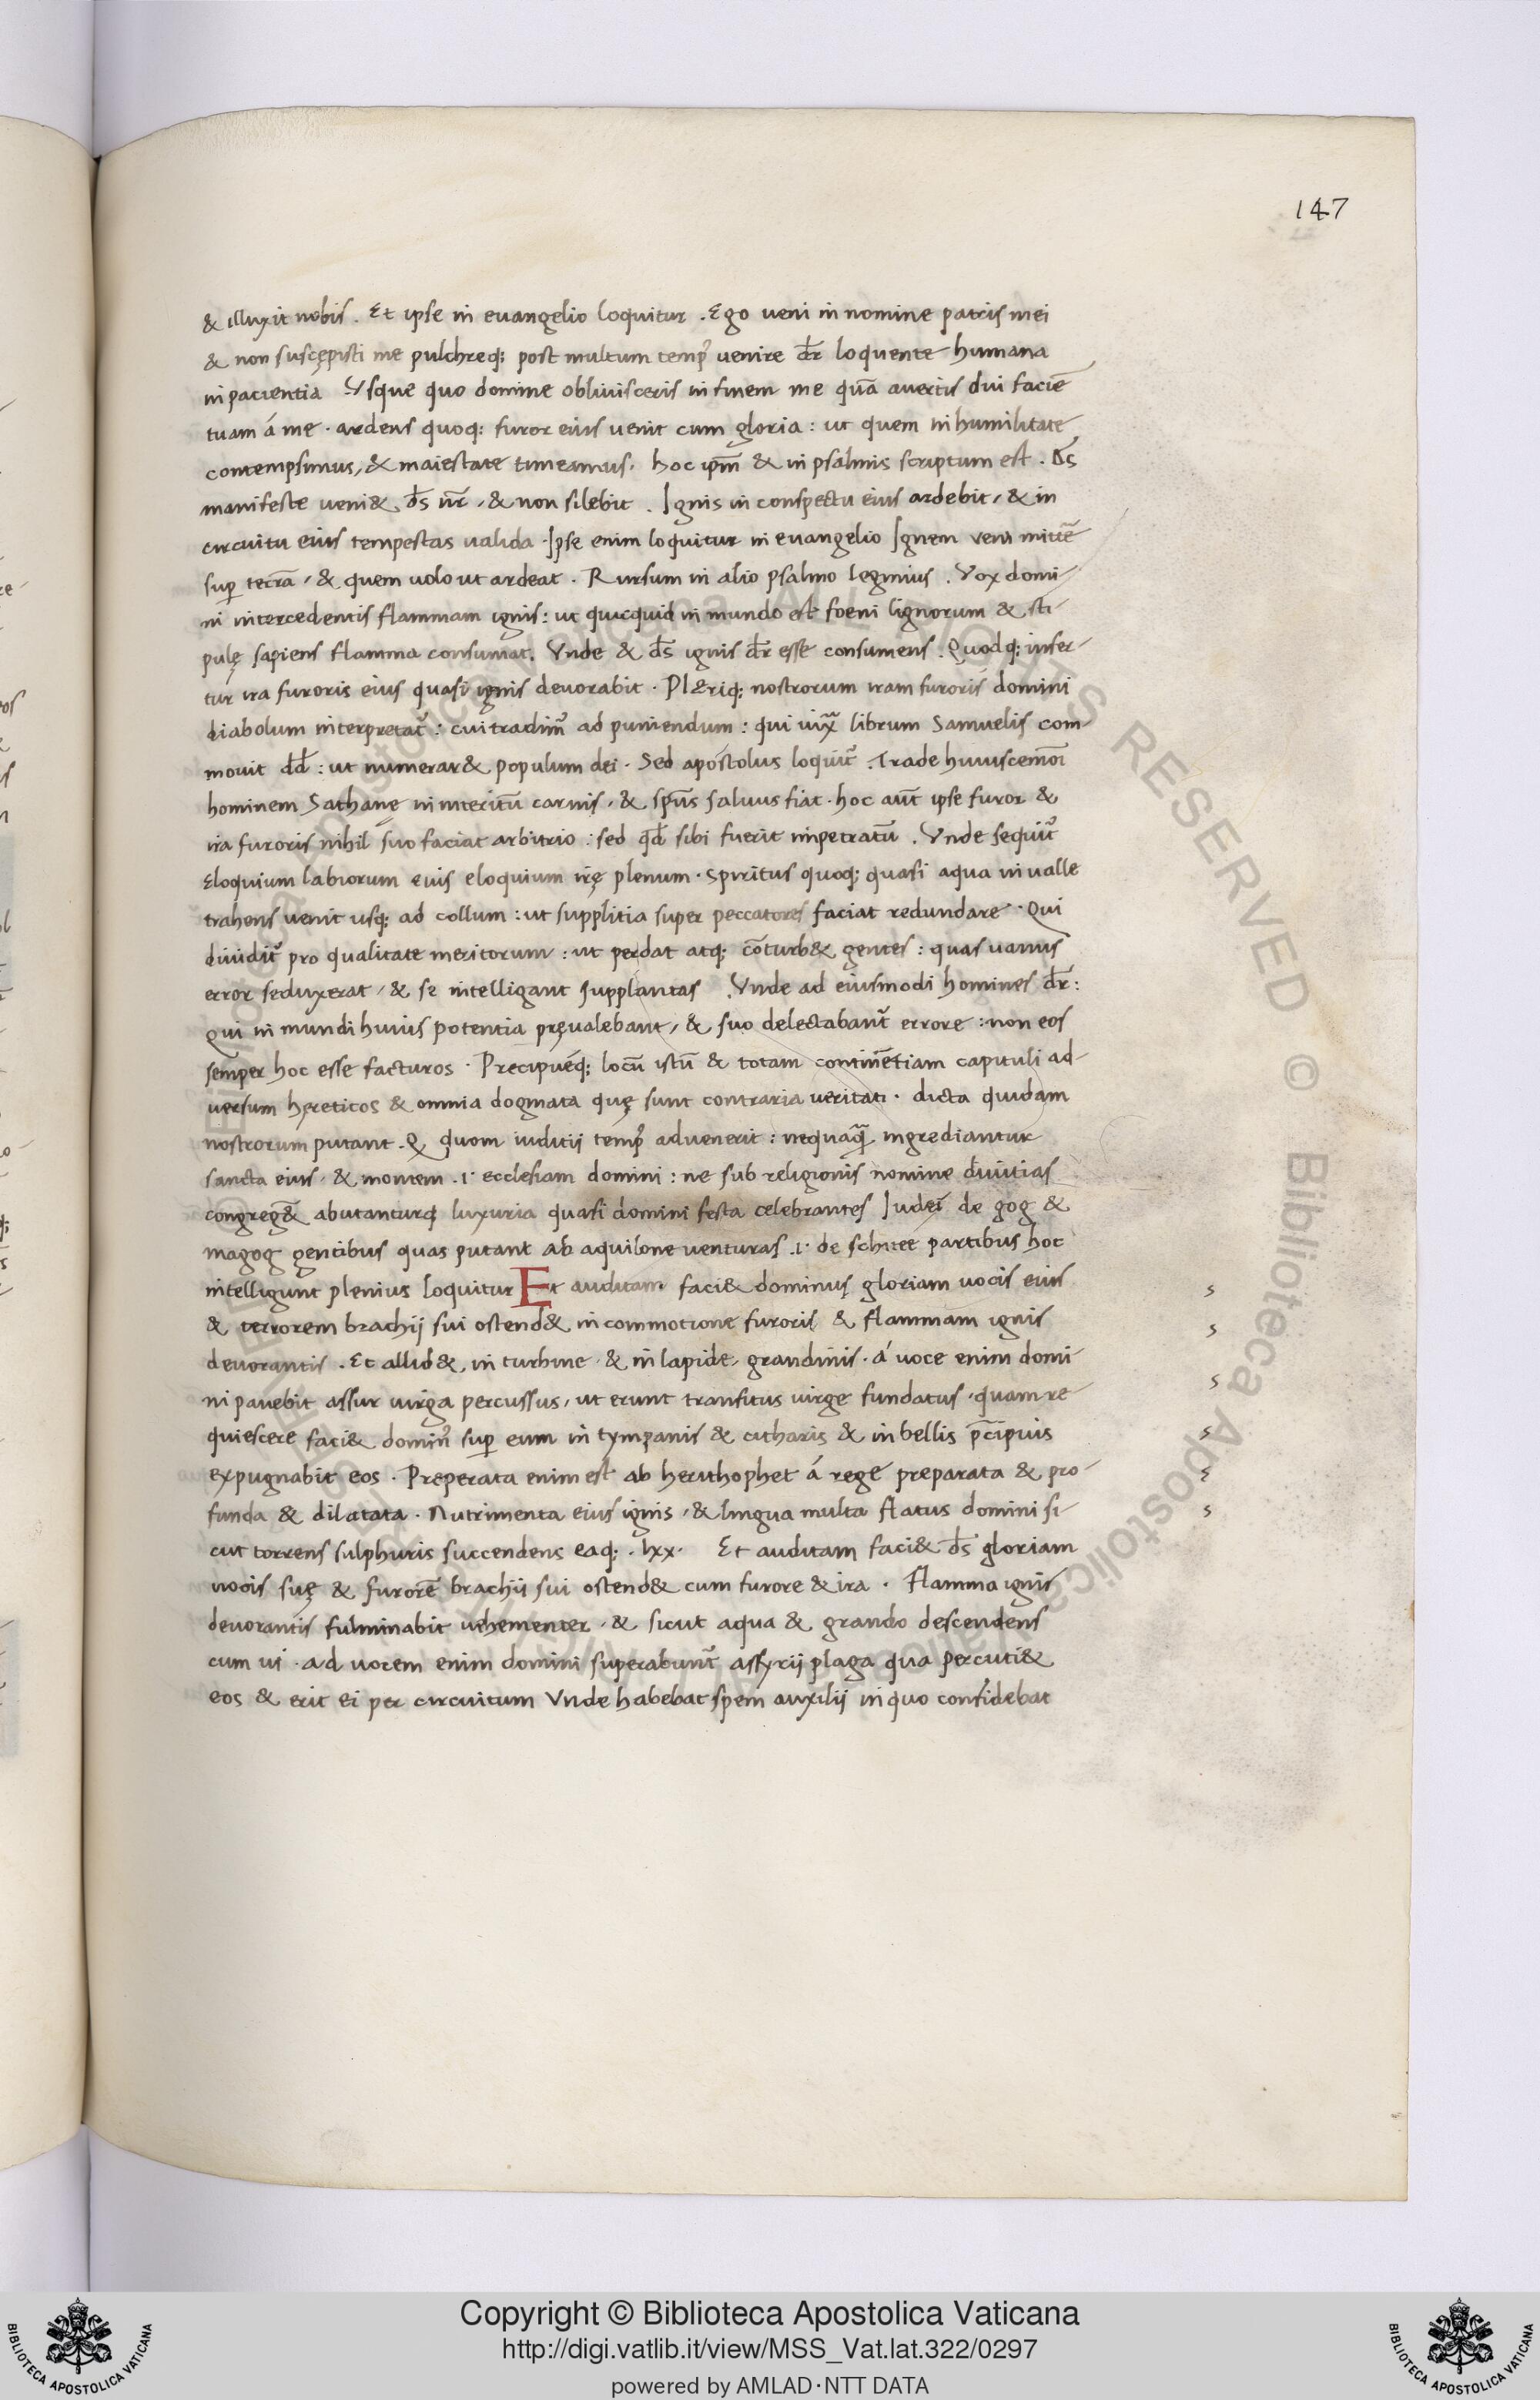 147
& illuxit nobis . Et ipse in euangelio loquitur . Ego ueni in nomine patris mei
& non suscępisti me pulchreq; post multum temp᾽ uenire dr̄ loquente humana
inpacientia Vsque quo domine obliuisceris in finem me quā auertis dui faciē
tuam á me . ardens quoq; furor eius uenit cum gloria : ut quem in humilitate
contempsimus, & maiestate timeamus. hoc ip̄m & in psalmis scriptum est . Ds̄
manifeste ueni& ds̄ nr̄ , & non silebit . Ignis in conspectu eius ardebit, & in
circuitu eius tempestas ualida . Ipse enim loquitur in euangelio Ignem ueni mittē
sup terrā, & quem uolo ut ardeat . Rursum in alio psalmo legimus . Vox domi-
ni intercedentis flammam ignis : ut quicquid in mundo est foeni lignorum & sti-
pulę sapiens flamma consumat. Vnde & ds̄ ignis dr̄ esse consumens . Quodq; infer-
tur ira furoris eius quasi ignis deuorabit . Pleriq; nostrorum iram furoris domini
diabolum interpretat᾽ : cui tradim᾽ ad puniendum : qui iuxͣ librum Samuelis com-
mouit dd̄ : ut numerar& populum dei . Sed apostolus loquit᾽ . Trade huiuscemōi
hominem Sathanę in interitū carnis, & sp̄us saluus fiat . hoc aūt ipse furor &
ira furoris nihil suo faciat arbitrio : sed qd̄ sibi fuerit impetratū . Vnde sequit᾽
Eloquium labiorum euis eloquium irę plenum . Spiritus quoq; quasi aqua in ualle
trahens uenit usq; ad collum : ut supplitia super peccatores faciat redundare . Qui
diuidit᾽ pro qualitate meritorum : ut perdat atq; cōturb& gentes : quas uanus
error seduxerat, & se intelligant supplantas . Vnde ad eiusmodi homines dr̄ :
qui in mundi huius potentia pręualebant, & suo delectabant᾽ errore : non eos
semper hoc esse facturos . Precipuéq; locū istū & totam continētiam capituli ad-
uersum hereticos & omnia dogmata quę sunt contraria ueritati . dicta quidam
nostrorum putant . Q quom iuditij temp᾽ aduenerit : nequaq̄ ingrediantur
sancta eius, & montem .i. ecclesiam domini : ne sub religionis nomine diuitias
congreg& abutanturq luxuria quasi domini festa celebrantes Iudei de gog &
magog gentibus quas putant ab aquilone venturas .i. de schitee partibus hoc
intelligunt plenius loquitur Et auditam faci& dominus gloriam uocis eius
& terrorem brachij sui ostend& in commotione furoris & flammam ignis
deuorantis . Et allid& in turbine, & in lapide, grandinis . á uoce enim domi-
ni pauebit assur uirga percussus, ut erunt transitus uirge fundatus, quam re-
quiescere faci& domin᾽ sup eum in tympanis & citharis & in bellis p̄cipuis
expugnabit eos . Preperata enim est ab herithophet á rege preparata & pro-
funda & dilatata . Nutrimenta eius ignis, & lingua multa flatus domini si-
cut torrens sulphuris succendens eaq; . lxx . Et auditam faci& ds̄ gloriam
uocis suę & furorē brachij sui ostend& cum furore & ira . Flamma ignis
deuorantis fulminabit uehementer, & sicut aqua & grando descendens
cum ui . ad uocem enim domini superabunt᾽ assyrij plaga qua percuti&
eos & erit ei per circuitum Vnde habebat spem auxilij in quo confidebat
Copyright © Biblioteca Apostolica Vaticana
http://digi.vatlib.it/view/MSS_Vat.lat.322/0297
powered by AMLAD·NTT DATA